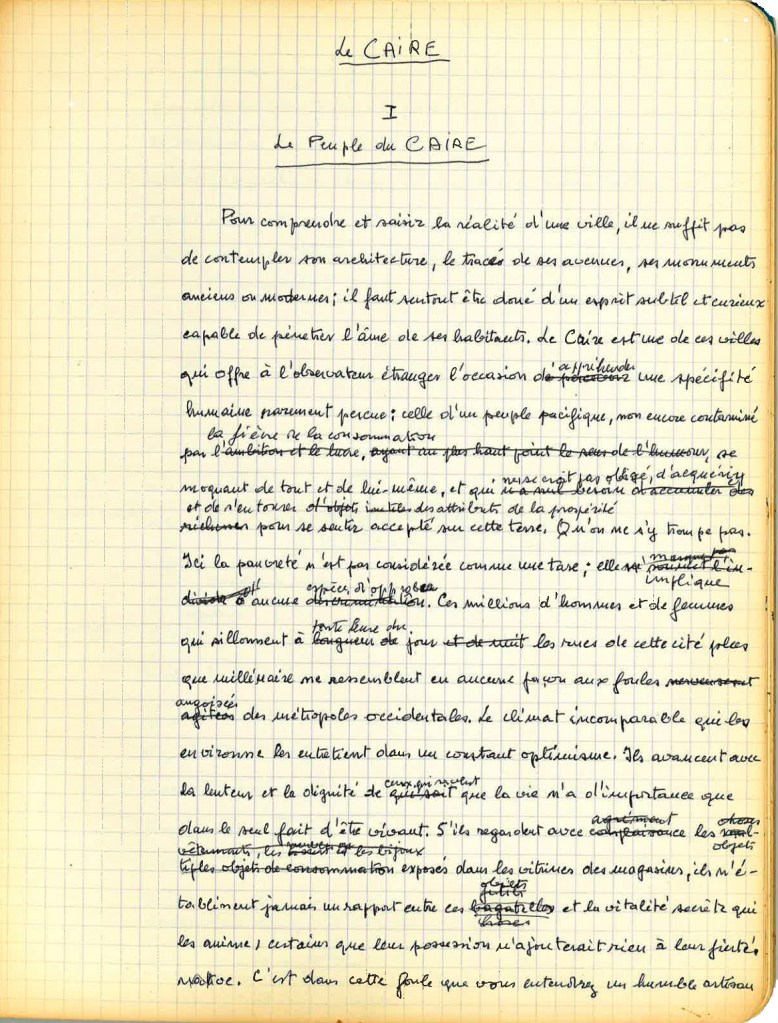 Le CAIRE
I
Le Peuple du CAIRE
Pour comprendre et saisir la réalité d'une ville, il ne suffit pas
de contempler son architecture, le tracés de ses avenues, ses monuments
anciens ou modernes; il faut surtout être doué d'un esprit subtil et curieux
capable de pénétrer l'âme de ses habitants. Le Caire est une de ces villes
d'appréhender
qui offre à l'observateur étranger l'occasion de percevoir une spécifité
humaine rarement perçue: celle d'un peuple pacifique, non encore contaminé
la fièvre de la consommation
par l'ambition et le lucre, ayant au plus haut point le sens de l'humour, se
ne se croit pas obligé, d'acquérir
moquant de tout et de lui-même, et qui n'a nul besoin d'accumuler des
et de s'entourer d'objets inutiles des attributs de la prospérité
richesses pour se sentir accepté sur cette terre. Qu'on ne s'y trompe pas.
Ici la pauvreté n'est pas considérée comme une tare; elle n'
implique
aucune discrimination. Ces millions d'hommes et de femmes
espèce d'opprobre
toute heure du
qui sillonnent à longueur de jour et de nuit les rues de cette cité plus
que millénaire ne ressemblent en aucune façon aux foules
angoissés
agitées des métropoles occidentales. Le climat incomparable qui les
environne les entretient dans un constant optimisme. Ils avancent avec
ceux qui savent
la lenteur et la dignité de qui sait que la vie n'a d'importance que
agrément choses
dans le seul fait d'être vivant. S'ils regardent avec complaisance les mul-
objets
vêtements, les et les bijoux
tiples objets de consommation exposés dans les vitrines des magasins, ils n'é-
objets
futiles
tablissent jamais un rapport entre ces bagatelles et la vitalité secrète qui
choses
les anime, certains que leur possession n'ajouterait rien à leur fierté
native. C'est dans cette foule que vous entendrez un humble artisan